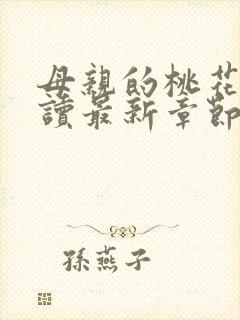 母親的桃花
讀最新章節
孫燕子